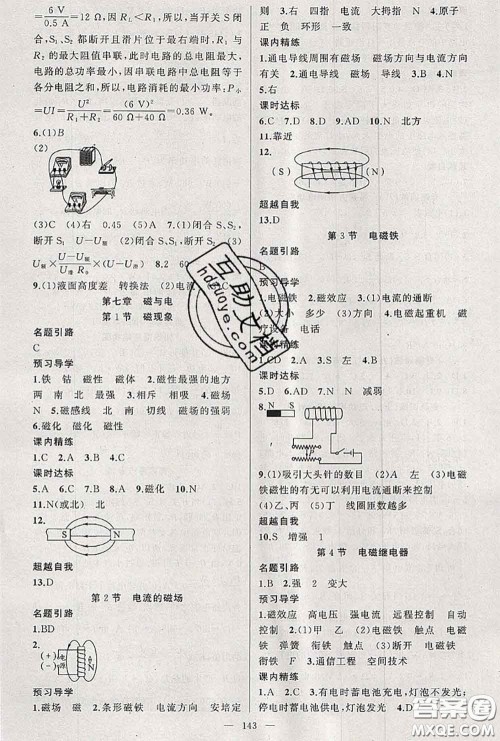 6 V/0.5 A=12 Ω,因 R₁<R₂,所以,当开关 S 闭
合,S₁、S₂ 都断开且滑片位于最右端时,R₁ 与 R₂
的最大阻值串联,此时电路的总电阻最大,
电路的总功率最小,因串联电路中总电阻等于
各分电阻之和,所以,电路消耗的最小功率:P小
=UI=U²/(R₁+R₂)=(6 V)²/(60 Ω+40 Ω)=0.36 W。
6.(1)B
(2)
(3)C (4)右 0.45 (5)A 7.(1)闭合 S、S₂,
9.(1)液面高度差 转换法
第七章 磁与电
第 1 节 磁现象
名题引路
C
预习导学
1.铁 钴 磁性 磁体 2.磁性最强的地方
两 南 北 最小 3.相斥 相吸 4.磁场
N S 5.磁感线 北 南 切线 磁场的强弱
6.磁化 磁化 磁性
课内精练
1.C 2.A 3.B 4.C
课时达标
5.A 6.C 7.B 8.A 9.磁化 10.A
11.N(或北) 北
12.
超越自我
13.D
第 2 节 电流的磁场
名题引路
1.BD
2.
(+)
(-)
电源
预习导学
1.磁场 磁 2.条形磁铁 电流方向 安培定
则 3.右 四指 电流 大拇指 N 4.原子
正 负 环形 一致
课内精练
1.通电导线周围有磁场 磁场方向与电流方向
有关 2.通电导线 磁场 导线 3.B 4.D
5.右
课时达标
6.C 7.D 8.D 9.AD 10.N 北方
11.靠近
12.
(S) (N)
超越自我
13.D
第 3 节 电磁铁
名题引路
B
预习导学
1.电磁铁 2.磁效应 3.(1)电流的通断
(2)大小 多少 (3)方向 4.电磁起重机 磁
疗设备 电话
课内精练
1.CD 2.A 3.SA 4.左
课时达标
5.D 6.AD 7.N N 减弱
8.
N S
P
9.(1)吸引大头针的数目 (2)A 左 (3)电磁
铁磁性的有无可以利用电流通断来控制
(4)乙、丙 (5)丁 线圈匝数越多
超越自我
10.S 增强 1
第 4 节 电磁继电器
名题引路
1.B 2.强 1 3.2 变大
预习导学
1.磁效应 高电压 强电流 远程控制 自动
控制 2.(1)甲 乙 (2)电磁铁 触点 电磁
铁 弹簧 衔铁 触点 (3)电磁铁 电流
衔铁 F 3.通信工程 空间技术
课内精练
1.A 2.C 3.有电时蓄电池充电,灯泡不发光;
停电时蓄电池供电,灯泡发光
— 143 —
互助文档
hdzuoye.com
答案圈
MXQE.COM